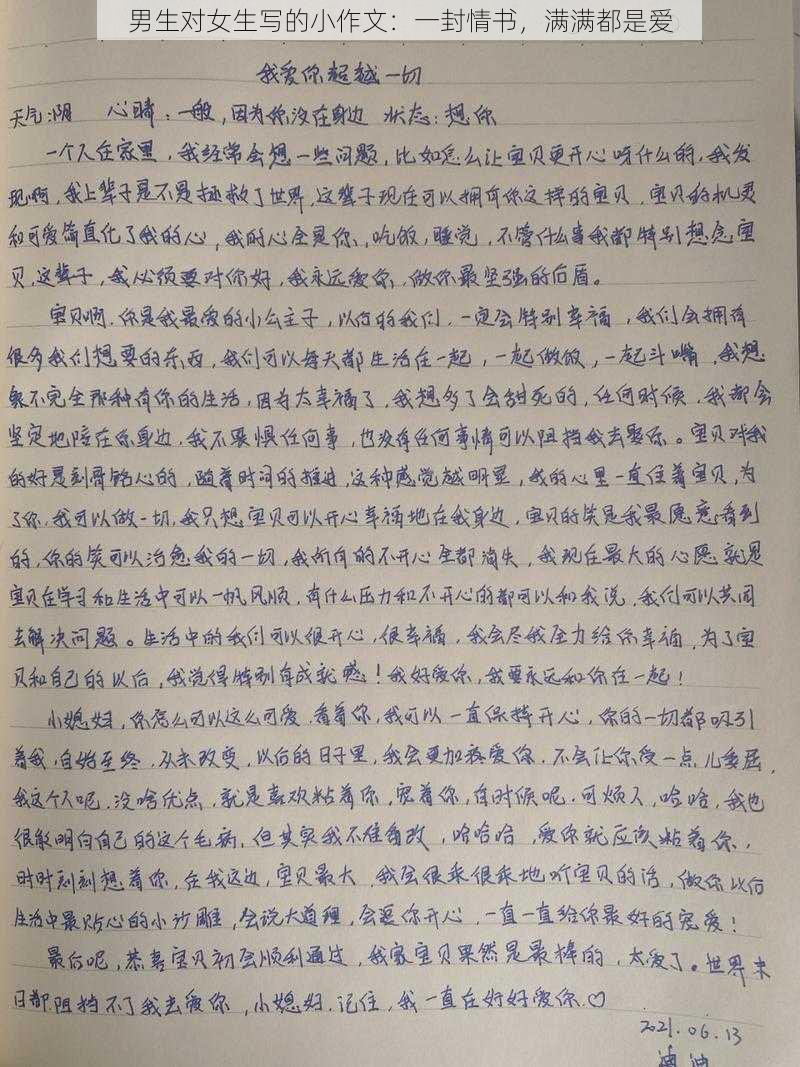 男生对女生写的小作文：一封情书，满满都是爱
我爱你超越一切
天气:阴 心晴:一般,因为你没在身边 状态:想你
一个人在家里,我经常会想一些问题,比如怎么让宝贝更开心呀什么的,我发
现啊,我上辈子是不是拯救了世界,这辈子现在可以拥有你这样的宝贝,宝贝的机灵
和可爱简直化了我的心,我的心全是你,吃饭,睡觉,不管什么事我都特别想念宝
贝,这辈子,我必须要对你好,我永远爱你,做你最坚强的后盾。
宝贝啊,你是我最爱的小公主子,以后的我们,一定会特别幸福,我们会拥有
很多我们想要的东西,我们可以每天都生活在一起,一起做饭,一起斗嘴,我想
象不完全那种有你的生活,因为太幸福了,我想多了会甜死的,任何时候,我都会
坚定地陪在你身边,我不畏惧任何事,也没有任何事情可以阻挡我去娶你。宝贝对我
的好是刻骨铭心的,随着时间的推进,这种感觉越明显,我的心里一直住着宝贝,为
了你,我可以做一切,我只想宝贝可以开心幸福地在我身边,宝贝的笑是我最愿意看到
的,你的笑可以治愈我的一切,我所有的不开心全都消失,我现在最大的心愿就是
宝贝在学习和生活中可以一帆风顺,有什么压力和不开心的都可以和我说,我们可以共同
去解决问题。生活中的我们可以很开心,很幸福,我会尽我全力给你幸福,为了宝
贝和自己的以后,我觉得特别有成就感!我好爱你,我要永远和你在一起!
小媳妇,你怎么可以这么可爱,看着你,我可以一直保持开心,你的一切都吸引
着我,自始至终,从未改变,以后的日子里,我会更加疼爱你,不会让你受一点儿委屈,
我这个人呢,没啥优点,就是喜欢粘着你,宠着你,有时候呢,可烦人,哈哈,我也
很能明白自己的这个毛病,但其实我不准备改,哈哈哈,爱你就应该粘着你,
时时刻刻想着你,在我这边,宝贝最大,我会很乖很乖地听宝贝的话,做你以后
生活中最贴心的小沙雕,会说大道理,会逗你开心,一直一直给你最好的宠爱!
最后呢,恭喜宝贝初会顺利通过,我家宝贝果然是最棒的,太爱了。世界末
日都阻挡不了我去爱你,小媳妇,记住,我一直在好好爱你♡
2021.06.13